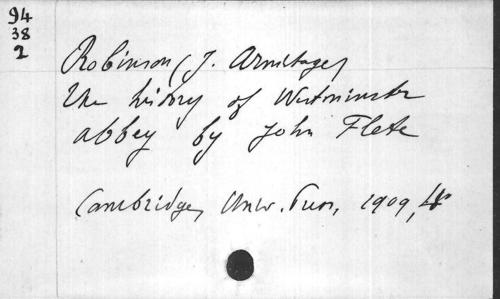 94
38
2
Robinson (J. Armitage)
The history of Westminster
abbey by John Flete
Cambridge, Univ. Press, 1909,